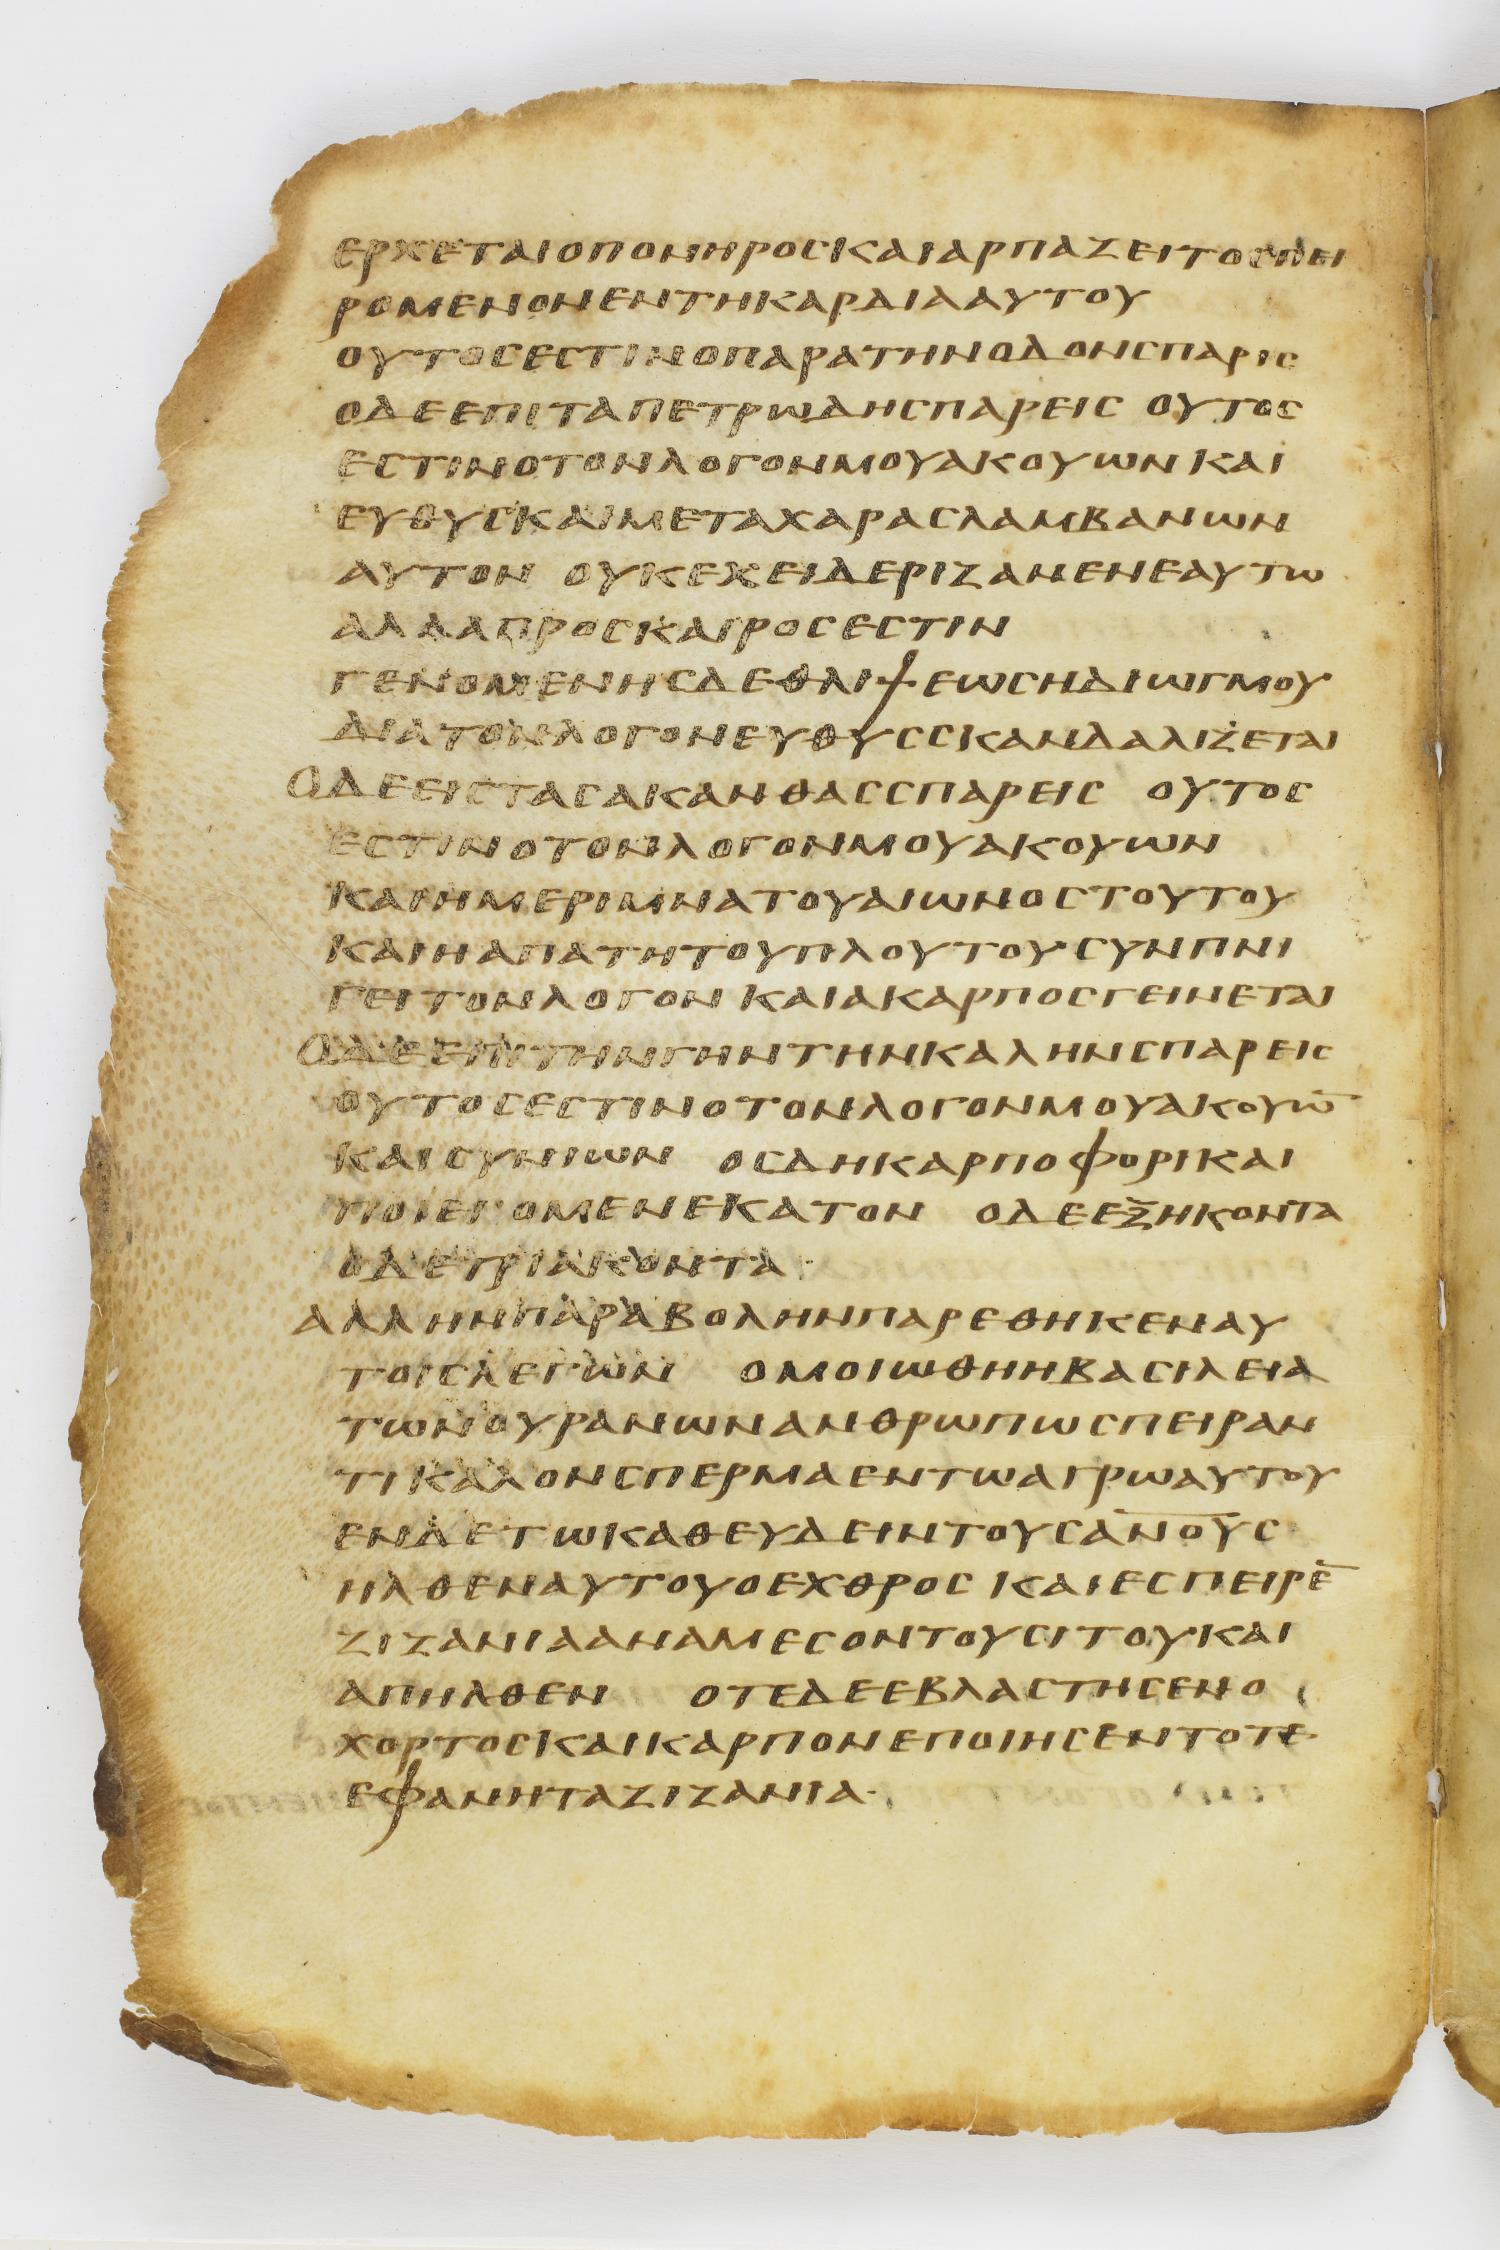 ερχεταιοπονηροσκαιαρπαζειτοσπει
ρομενονεντηκαρδιααυτου
ουτοσεστινοπαρατηνοδονσπαρις
οδεεπιταπετρωδησπαρεις ουτος
εστινοτονλογονμουακουων και
ευθυσκαιμεταχαρασλαμβανων
αυτον ουκεχειδεριζανενεαυτω
αλλαπροσκαιροσεστιν
γενομενησδεθλιψεωσηδιωγμου
διατονλογονευθυσσκανδαλιζεται
Οδεειστασακανθασσπαρεις ουτος
εστινοτονλογονμουακουων
καιημεριμνατουαιωνοστουτου
καιηαπατητουπλουτουσυνπνι
γειτονλογον καιακαρποσγεινεται
Οδεεπιτηνγηντηνκαληνσπαρεις
ουτοσεστινοτονλογονμουακουω̅
καισυνιων οσδηκαρποφορικαι
ποιει ομενεκατον οδεεξηκοντα
οδετριακοντα·
αλληνπαραβοληνπαρεθηκεναυ
τοισλεγων ομοιωθηηβασιλεια
τωνουρανωνανθρωπωσπειραν
τικαλονσπερμαεντωαγρωαυτου
ενδετωκαθευδειντουσα̅ν̅ο̅υ̅ς
ηλθεναυτουοεχθρος καιεσπειρε̅
ζιζανιααναμεσοντουσιτουκαι
απηλθεν οτεδεεβλαστησενο
χορτοσκαικαρπονεποιησεντοτε
εφανηταζιζανια·